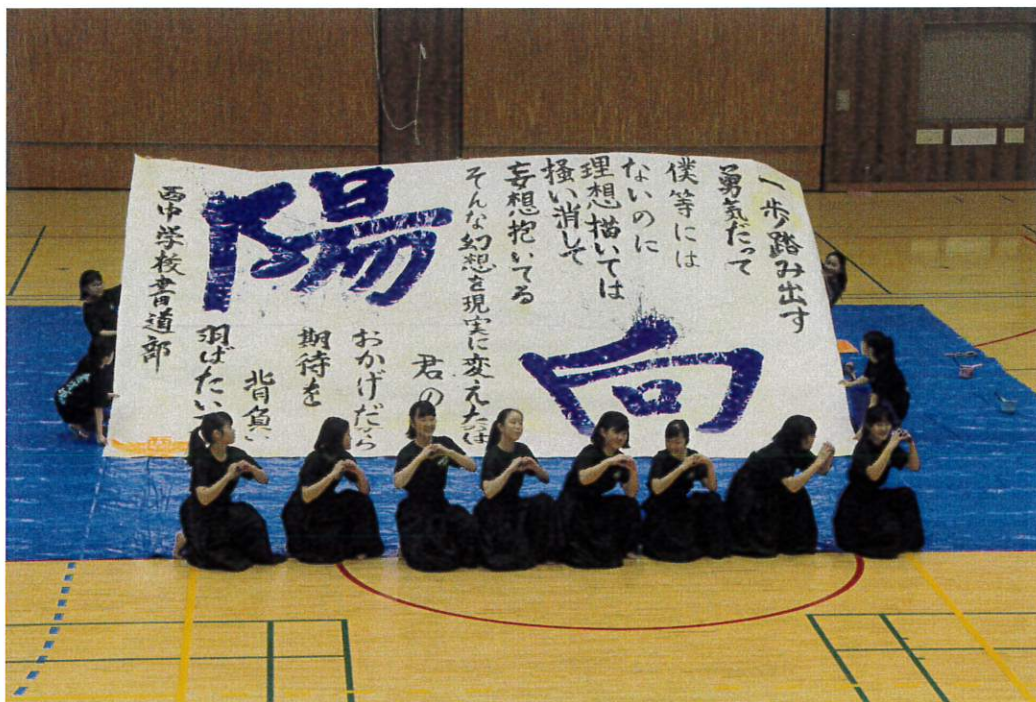 一歩踏み出す
勇気だって
僕等には
ないのに
理想描いては
掻い消して
妄想抱いてる
そんな幻想を現実に変えたのは
君の
おかげだから
期待を
背負い
羽ばたい
向陽
西中学校書道部